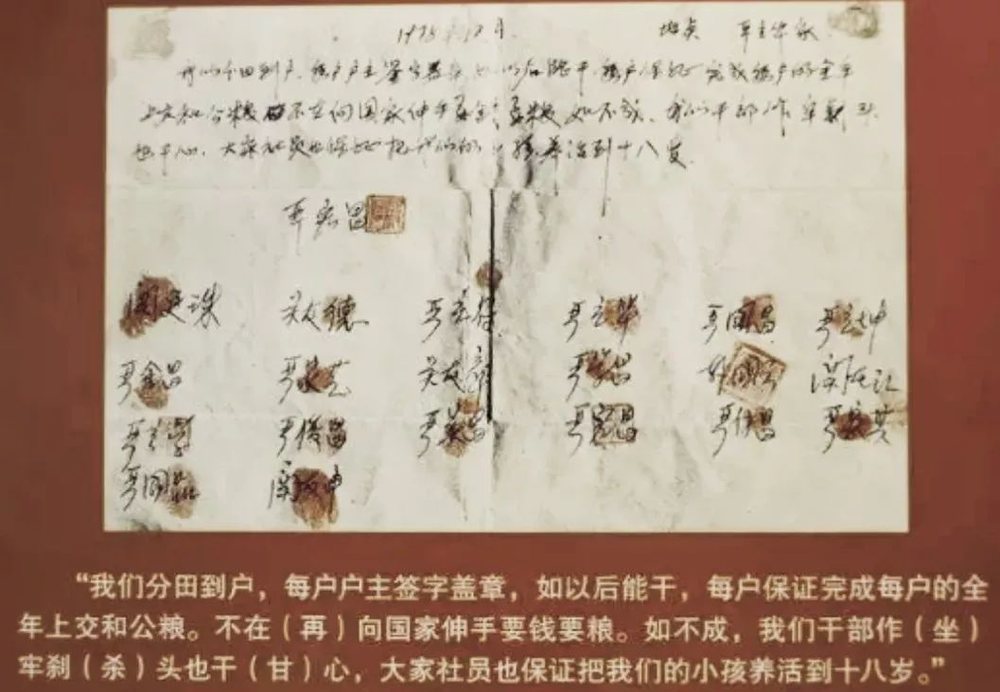 1978年12月 地点 严立华家
我们分田到户,每户户主签字盖章,如以后能干,每户保证完成每户的全年
上交和公粮,不在向国家伸手要钱要粮,如不成,我们干部作牢刹头
也干心,大家社员也保证把我们的小孩养活到十八岁。
严宏昌
关廷珠 关友德 严立符 严立华 严国昌 严立坤
严金昌 严家芝 关友章 严学昌 韩国云 关友江
严立学 严俊昌 严美昌 严宏昌 严付昌 严家其
严国品 关友申
“我们分田到户,每户户主签字盖章,如以后能干,每户保证完成每户的全
年上交和公粮。不在(再)向国家伸手要钱要粮。如不成,我们干部作(坐)
牢刹(杀)头也干(甘)心,大家社员也保证把我们的小孩养活到十八岁。”